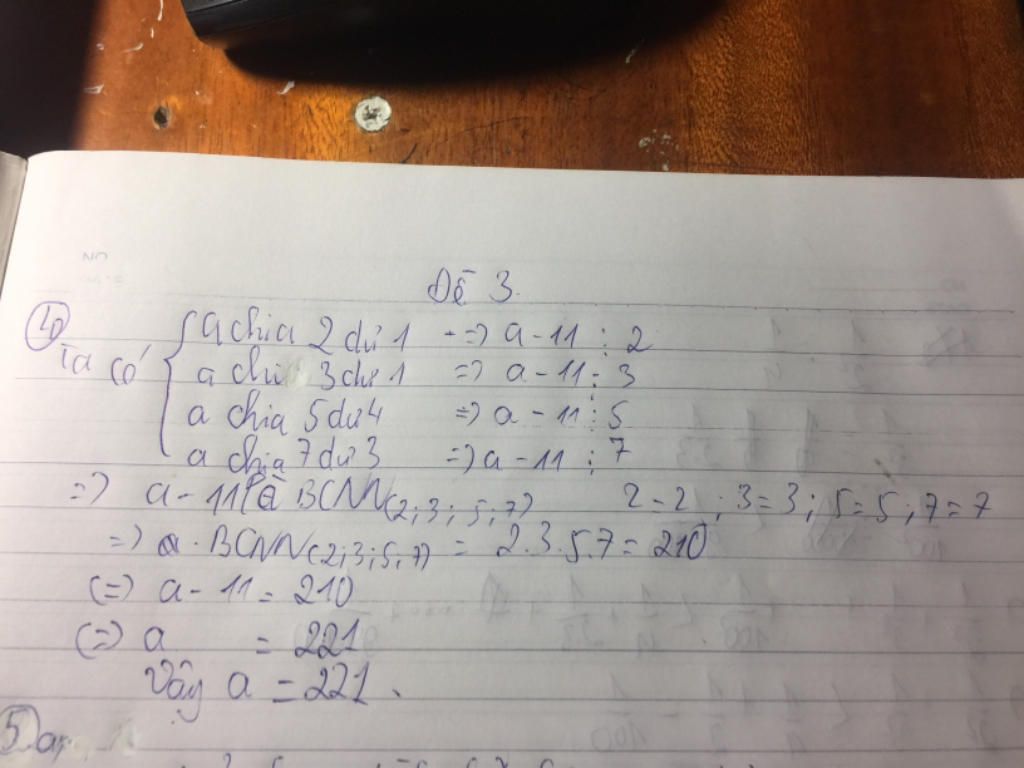 Đề 3.
4) Ta có { a chia 2 dư 1 => a - 11 ⋮ 2
a chia 3 dư 1 => a - 11 ⋮ 3
a chia 5 dư 4 => a - 11 ⋮ 5
a chia 7 dư 3 => a - 11 ⋮ 7
=> a - 11 là BCNN(2; 3; 5; 7) 2 = 2 ; 3 = 3 ; 5 = 5 ; 7 = 7
=> BCNN(2; 3; 5; 7) = 2.3.5.7 = 210
(=) a - 11 = 210
(=) a = 221
Vậy a = 221.
5)